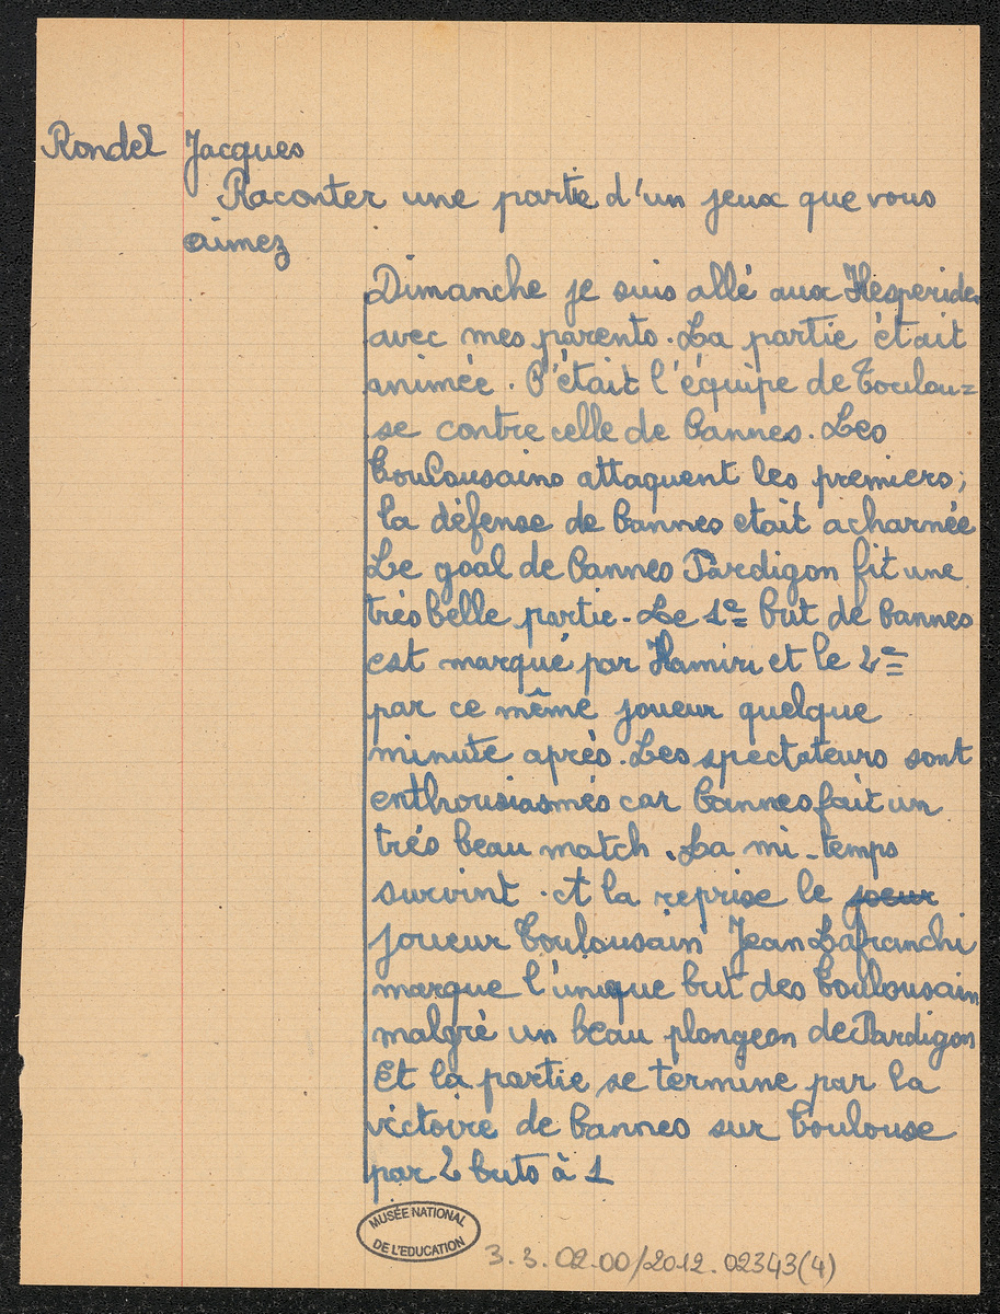 Rondel Jacques
Raconter une partie d'un jeux que vous
aimez
Dimanche je suis allé aux Hespérides
avec mes parents. La partie était
animée. C'était l'équipe de Toulou=
se contre celle de Cannes. Les
Toulousains attaquent les premiers;
la défense de Cannes etait acharnée
Le goal de Cannes Pardigon fit une
très belle partie. Le 1e but de Cannes
est marqué par Hamiri et le 2e
par ce même joueur quelque
minute après. Les spectateurs sont
enthousiasmés car Cannes fait un
trés beau match. La mi-temps
survint. A la reprise le joeur
joueur Toulousain Jean Lafranchi
marque l'unique but des Toulousain
malgré un beau plongeon de Pardigon
Et la partie se termine par la
victoire de Cannes sur Toulouse
par 2 buts à 1
MUSÉE NATIONAL
DE L'EDUCATION
3.3.02.00/2012.02343(4)